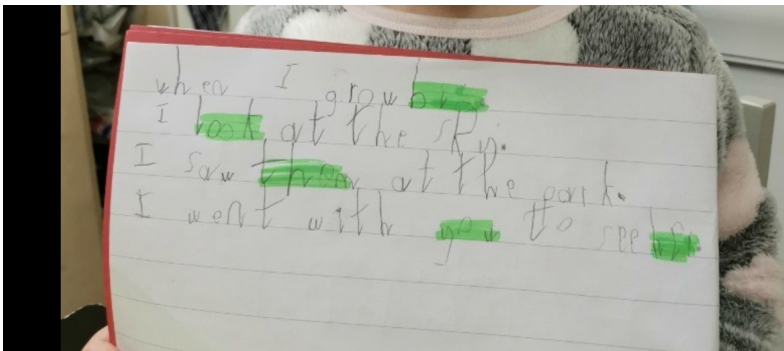 when I grow
I look at the sky.
I saw them at the park.
I went with you to see